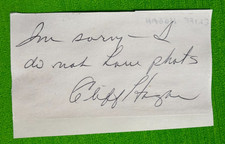 I'm sorry – I
do not have photos
Cliff Hagan